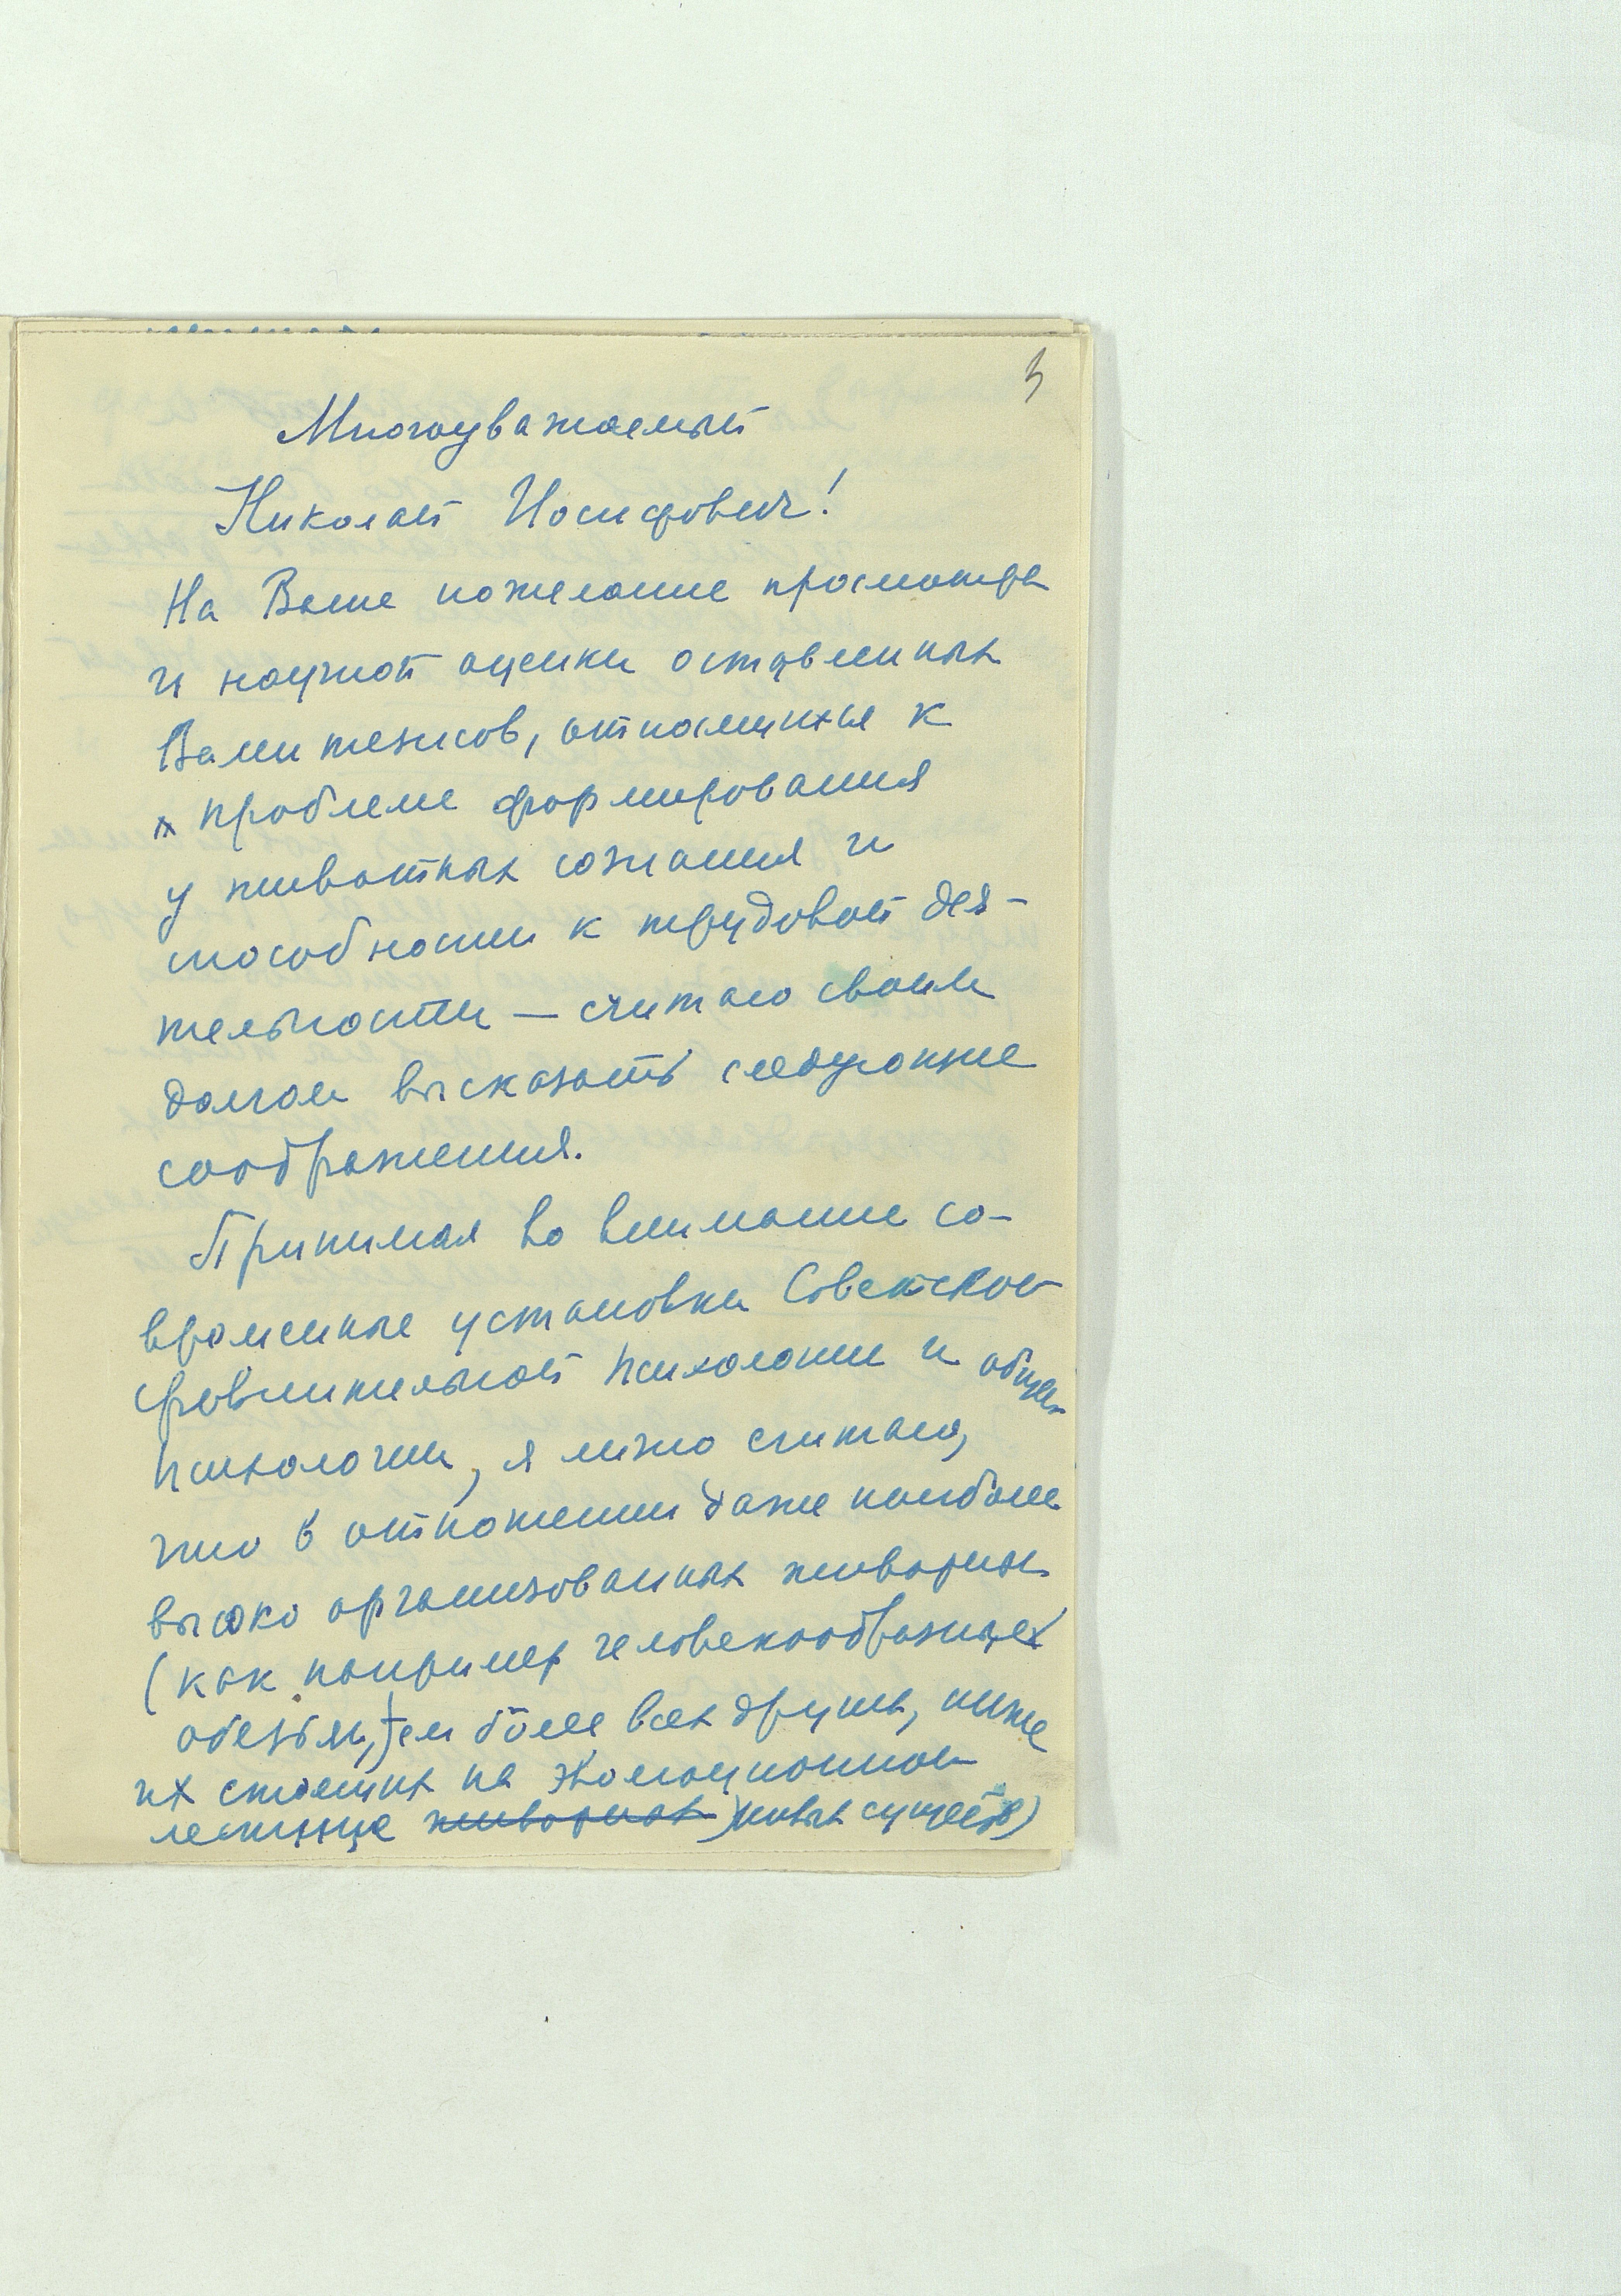 3
Многоуважаемый
Николай Иосифович!
На Ваше пожелание просмотра
и научной оценки оставленных
Вами тезисов, относящихся к
к проблеме формирования
у животных сознания и
способности к трудовой дея-
тельности — считаю своим
долгом высказать следующие
соображения.
Принимая во внимание со-
временные установки Советской
сравнительной психологии и общей
психологии, я лично считаю,
что в отношении даже наиболее
высоко организованных животных
(как например человекообразных
обезьян, тем более всех других, ниже
их стоящих на эволюционной
лестнице животных) живых существ)